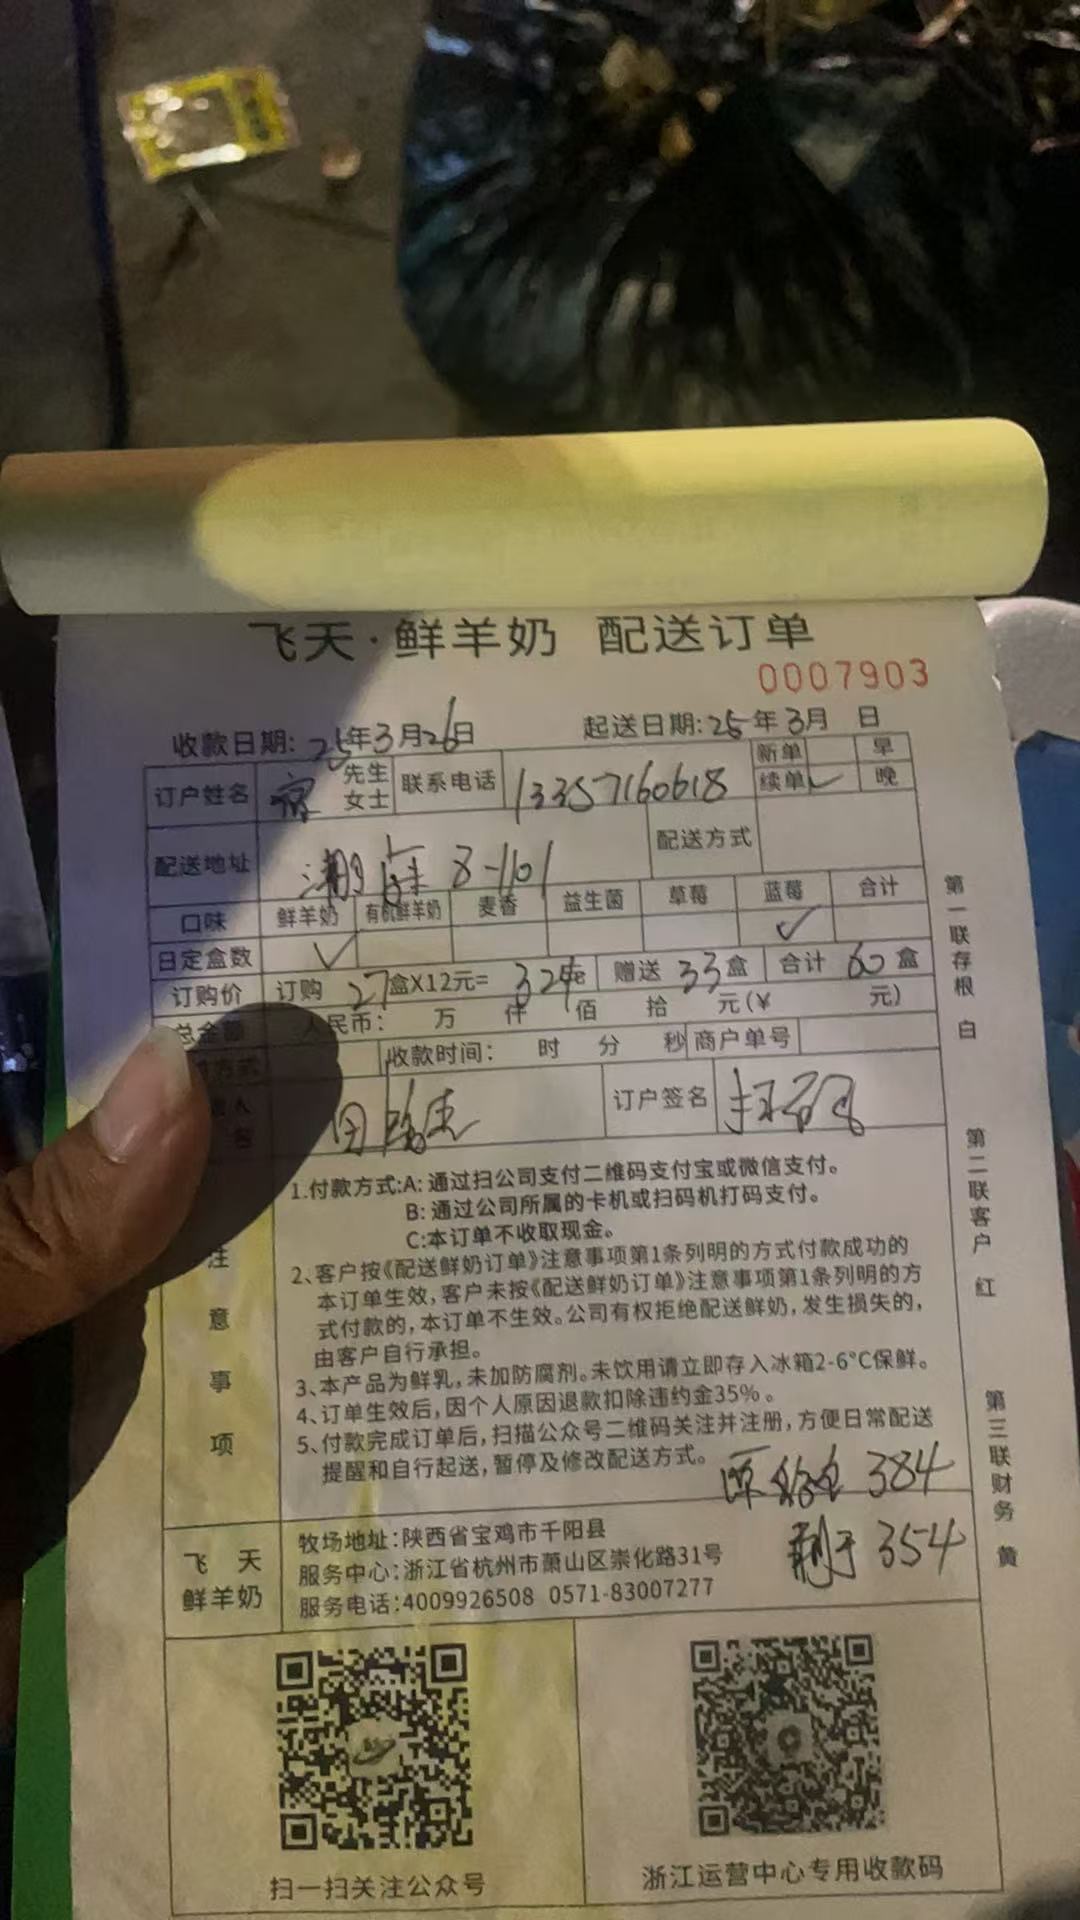 飞天·鲜羊奶 配送订单
0007903
收款日期: 25年3月26日 起送日期: 25年3月 日
订户姓名 先生 女士 联系电话 13357160618 新单 早
续单 ✓ 晚
配送地址 8-1101 配送方式
口味 鲜羊奶 有机鲜羊奶 麦香 益生菌 草莓 蓝莓 合计
日定盒数 ✓ ✓
订购价 订购 27盒X12元= 324 赠送 33盒 合计 60盒
总金额 人民币: 万 仟 佰 拾 元(¥ 元)
方式 收款时间: 时 分 秒 商户单号
人 名 田 订户签名
注意事项
1.付款方式:A: 通过扫公司支付二维码支付宝或微信支付。
B: 通过公司所属的卡机或扫码机打码支付。
C:本订单不收取现金。
2、客户按《配送鲜奶订单》注意事项第1条列明的方式付款成功的
本订单生效,客户未按《配送鲜奶订单》注意事项第1条列明的方
式付款的,本订单不生效。公司有权拒绝配送鲜奶,发生损失的,
由客户自行承担。
3、本产品为鲜乳,未加防腐剂。未饮用请立即存入冰箱2-6°C保鲜。
4、订单生效后,因个人原因退款扣除违约金35%。
5、付款完成订单后,扫描公众号二维码关注并注册,方便日常配送
提醒和自行起送,暂停及修改配送方式。
384
剩于 354
飞天
鲜羊奶
牧场地址:陕西省宝鸡市千阳县
服务中心:浙江省杭州市萧山区崇化路31号
服务电话:4009926508 0571-83007277
扫一扫关注公众号
浙江运营中心专用收款码
第一联存根 白
第二联客户 红
第三联财务 黄